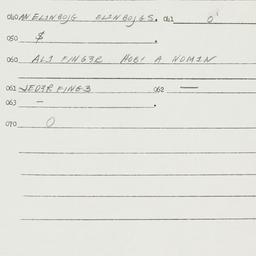 040 AN ELINBOJG ELINBOJGS. 041 0
050 $ .
060 ALI FINGER HOBI A NOMIN
061 JEDER FINGS 062 —
063 — .
070 0